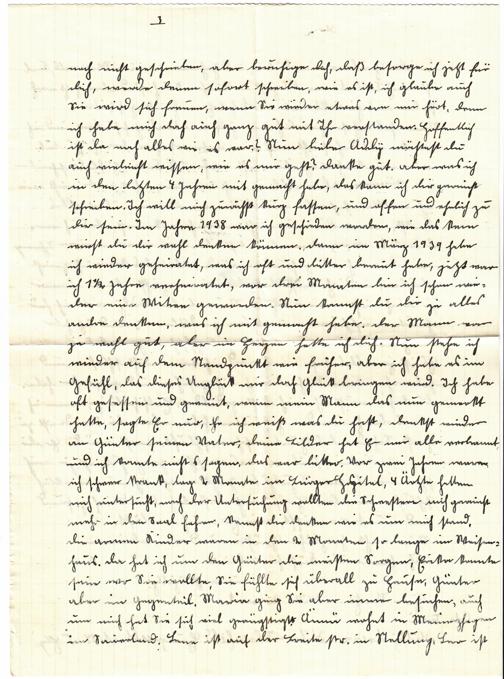 1
noch nicht geschrieben, aber beruhige dich, daß besorge ich jetzt für
dich, werde denen sofort schreiben, wie es ist, ich glaube auch
Sie wird sich freuen, wenn Sie wieder etwas von mir hört, denn
ich habe mich doch auch ganz gut mit Ihr verstanden. Hoffentlich
ist da noch alles wie es war? Nun lieber Addy möchtest du
auch vielleicht wissen, wie es mir geht? danke gut. aber was ich
in den letzten 4 Jahren mit gemacht habe, das kann ich dir
schreiben. Ich will mich zunächst kurz fassen, und offen und ehrlich zu
dir sein. Im Jahre 1938 war ich geschieden worden, wie das kam
wirst du dir wohl denken können, dann im März 1939 habe
ich wieder geheiratet, was ich oft und bitter bereut habe, jetzt war
ich 1¾ Jahre verheiratet, vor drei Monaten bin ich schon wie-
der eine Witwe geworden. Nun kannst du dir ja alles
andre denken, was ich mit gemacht habe. der Mann war
ja wohl gut, aber im Herzen hatte ich dich. Nun stehe ich
wieder auf dem Standpunkt wie früher, aber ich habe es im
Gefühl, das dieses Unglück mir doch Glück bringen wird. Ich habe
oft gesessen und geweint, wenn mein Mann das nur gemerkt
hatte, sagte Er nur, Ja ich weiß was du hast, denkst wieder
an Günter seinen Vater, deine Bilder hat Er mir alle verbrannt
und ich konnte nichts sagen, das war bitter. Vor zwei Jahren war
ich schwer krank, lag 2 Monate im Bürger Hospital, 4 Ärzte hatten
mich untersucht, nach der Untersuchung wollten die Schwestern mich
mehr in den Saal fahren, kannst du denken wie es um mich stand.
die armen Kinder waren in den 2 Monaten so lange im Waisen-
haus. da hat ich um den Günter die meisten Sorgen, konnte
sein wo Sie wollte Sie fühlte sich überall zu Hause, Günter
aber im Gegenteil. Maria ging Sie aber immer besuchen, auch
um mich hat Sie sich viel geängstigt. Änne wohnt in Meinerzhagen
im Sauerland. Lene ist auf der Breite str. in Stellung, ist